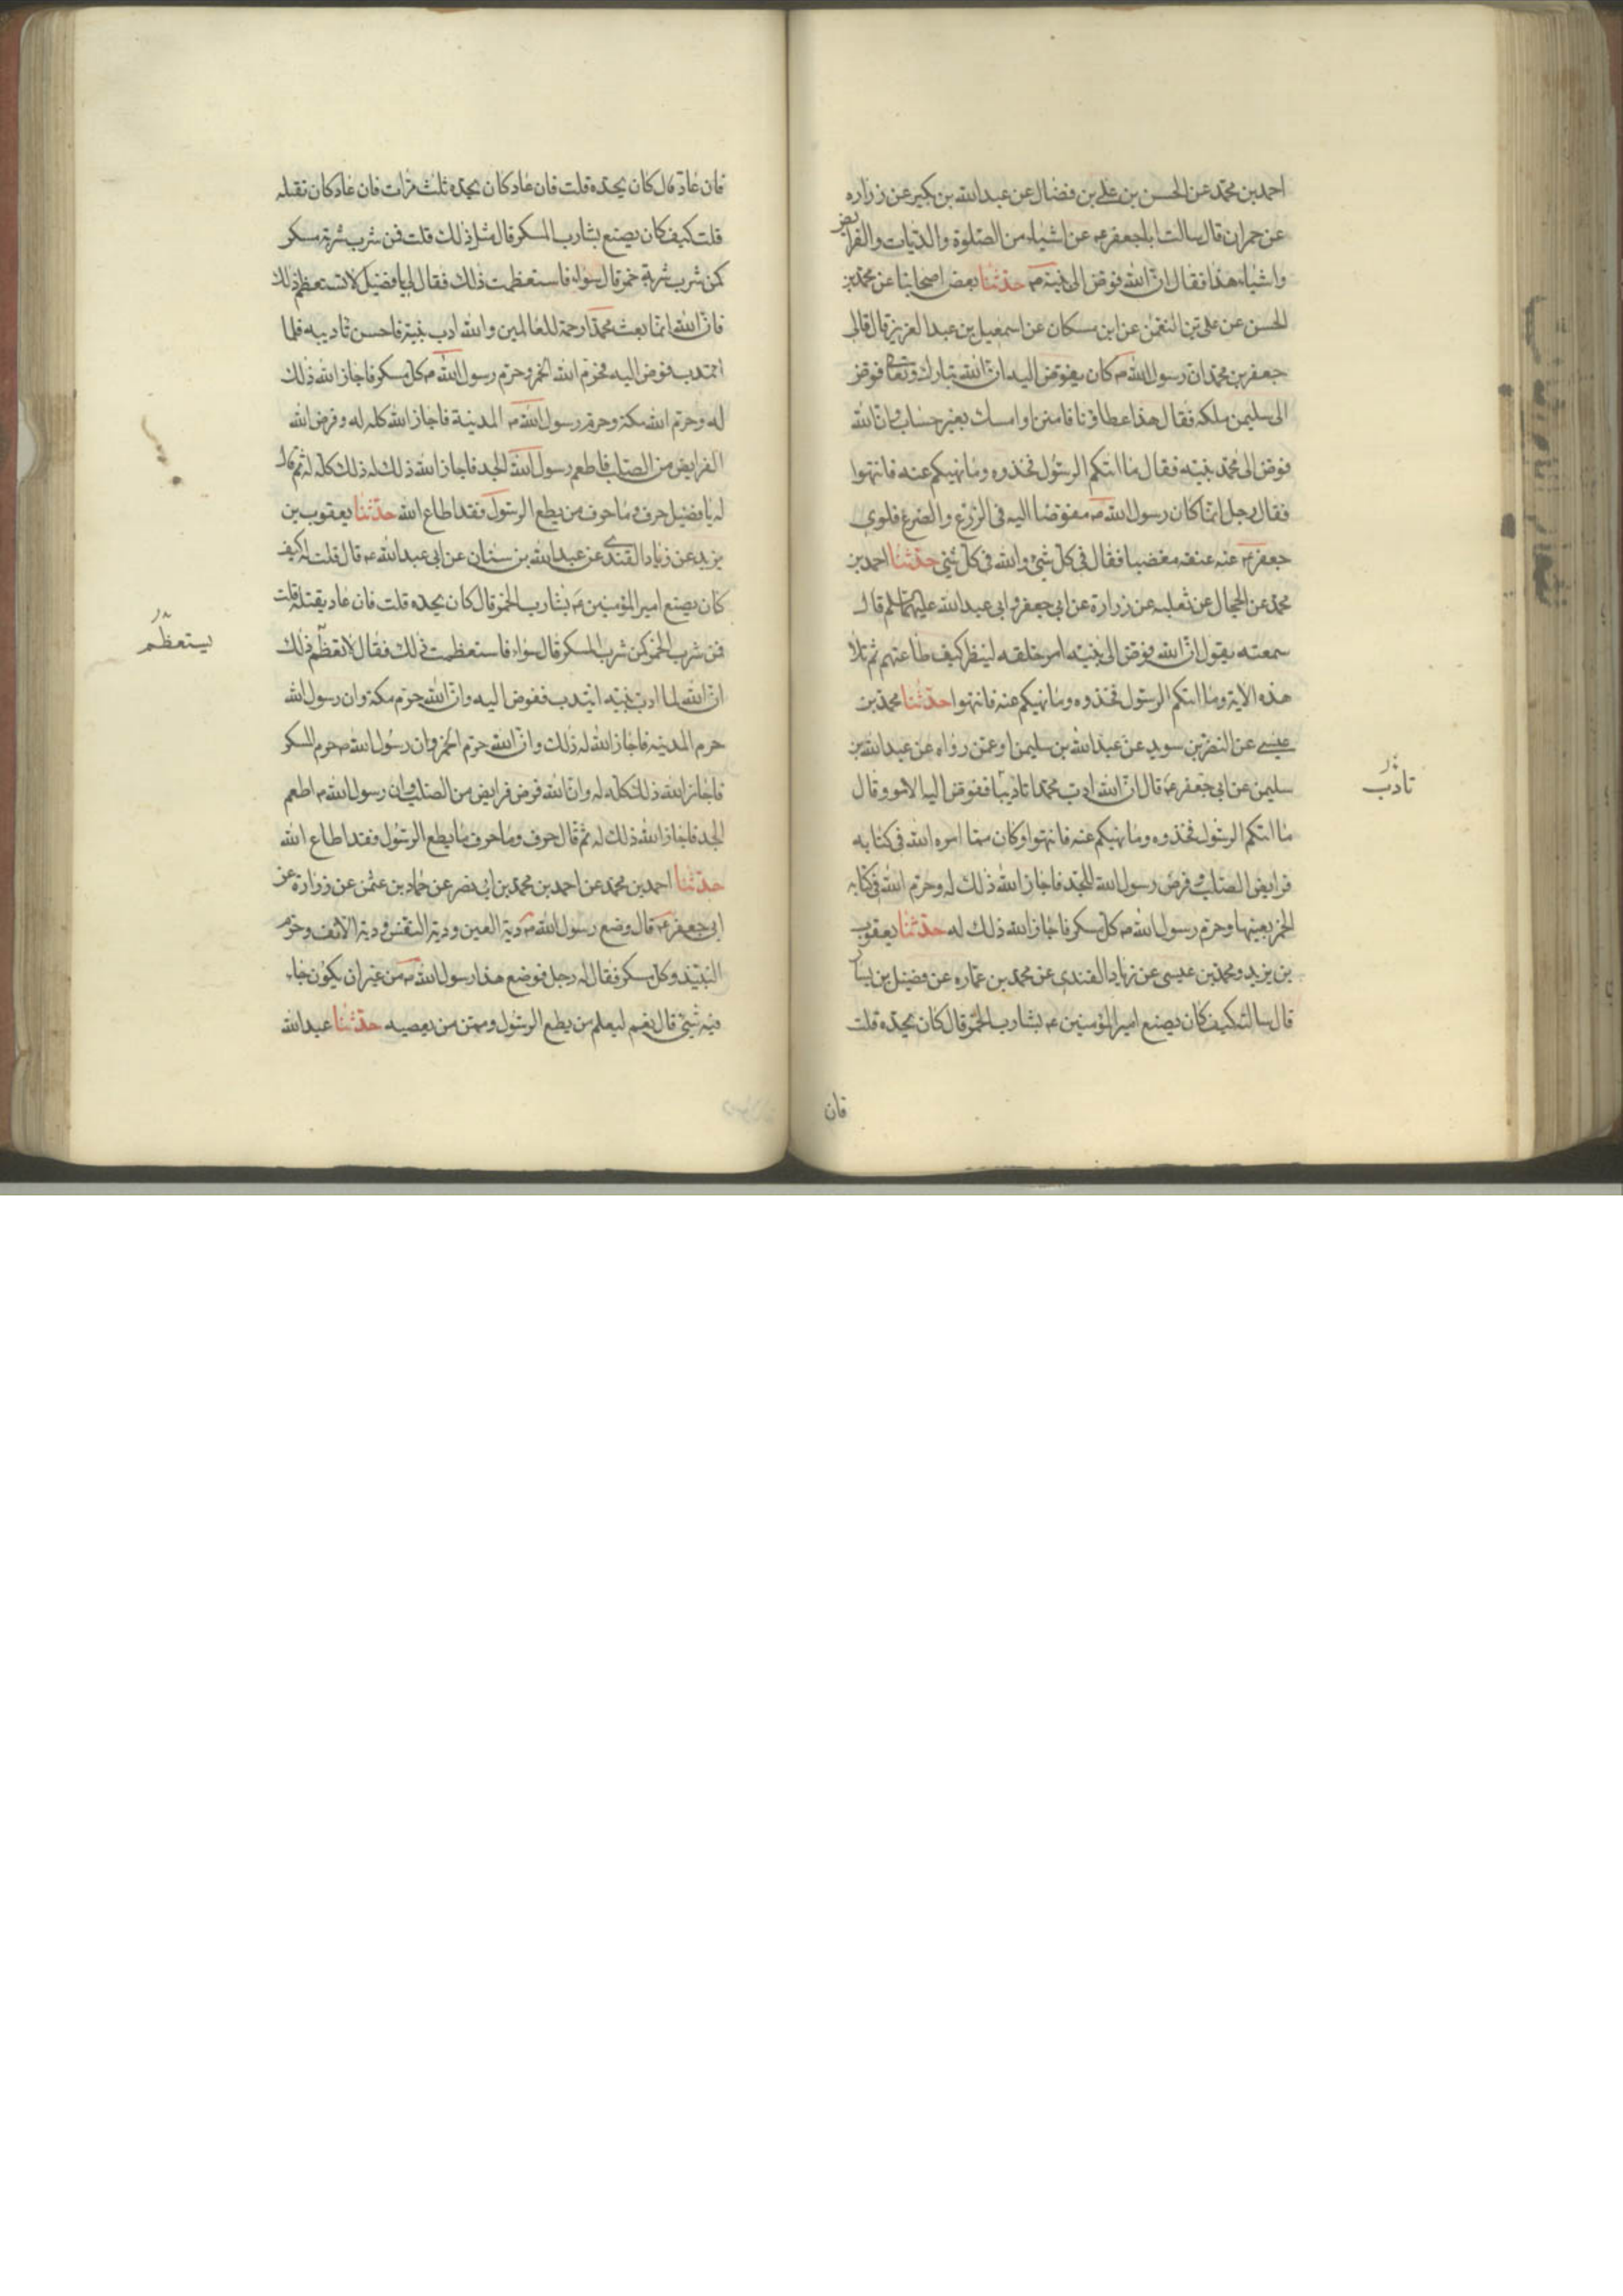 احمد بن محمد عن الحسن بن علي بن فضال عن عبدالله بن بكير عن زراره
عن حمران قال سالت اباجعفر ع عن اشياء من الصلوة والديات والفرايض
واشباه هذا فقال ان الله فوض الى نبيه ص حدثنا بعض اصحابنا عن محمد بن
الحسن عن علي بن النعمن عن ابن مسكان عن اسمعيل بن عبد العزيز قال قال لي
جعفر بن محمد ان رسول الله ص كان يفوض اليه ان الله تبارك وتعالى فوض
الى سليمن ملكه فقال هذا عطاؤنا فامنن او امسك بغير حساب وان الله
فوض الى محمد نبيه فقال ما اتيكم الرسول فخذوه وما نهيكم عنه فانتهوا
فقال رجل انما كان رسول الله ص مفوضا اليه في الزرع والضرع فلوى
جعفر ع عنه عنقه مغضبا فقال في كل شئ والله في كل شئ حدثنا احمد بن
محمد عن الحجال عن ثعلبه عن زرارة عن ابي جعفر و ابي عبد الله عليهما السلم قال
سمعته يقول ان الله فوض الى نبيه امر خلقه لينظر كيف طاعتهم ثم تلا
هذه الاية وما اتيكم الرسول فخذوه وما نهيكم عنه فانتهوا حدثنا محمد بن
عيسى عن النضر بن سويد عن عبدالله بن سليمن او عمن رواه عن عبدالله بن
سليمن عن ابي جعفر ع قال ان الله ادب محمدا تاديبا ففوض اليه الامر وقال
تادب
ما اتيكم الرسول فخذوه وما نهيكم عنه فانتهوا وكان مما امره الله في كتابه
فرايض الصلب وفرض رسول الله للجد فاجاز الله ذلك له وحرم الله في كتابه
الخمر بعينها وحرم رسول الله ص كل مسكر فاجاز الله ذلك له حدثنا يعقوب
بن يزيد ومحمد بن عيسى عن زياد القندى عن محمد بن عماره عن فضيل بن يسار
قال سالته كيف كان يصنع امير المؤمنين ع بشارب الخمر قال كان يحده قلت
فان
فان عاد قال كان يحده قلت فان عاد كان يحده ثلث مرات فان عاد كان نقتله
قلت كيف كان يصنع بشارب المسكر قال مثل ذلك قلت فمن شرب شربة مسكر
كمن شرب شربة خمر قال سواء فاستعظمت ذلك فقال لي يا فضيل لا تستعظم ذلك
فان الله انما بعث محمدا رحمة للعالمين والله ادب نبيه فاحسن تاديبه فلما
ائتدب فوض اليه فحرم الله الخمر وحرم رسول الله ص كل مسكر فاجاز الله ذلك
له وحرم الله مكة وحرم رسول الله ص المدينة فاجاز الله كله له وفرض الله
الفرايض من الصلب فاطعم رسول الله الجد فاجاز الله ذلك له ذلك كله له ثم قال
له يا فضيل حرف وما حرف من يطع الرسول فقد اطاع الله حدثنا يعقوب بن
يزيد عن زياد القندى عن عبدالله بن سنان عن ابي عبدالله ع قال قلت له كيف
كان يصنع امير المؤمنين ع بشارب الخمر قال كان يحده قلت فان عاد يقتله قلت
فمن شرب الخمر كمن شرب المسكر قال سواء فاستعظمت ذلك فقال لا تعظم ذلك
يستعظم
ان الله لما ادب نبيه ايتدب ففوض اليه وان الله حرم مكة وان رسول الله
حرم المدينه فاجاز الله له ذلك وان الله حرم الخمر وان رسول الله ص حرم المسكر
فاجاز الله ذلك كله له وان الله فرض فرايض من الصلب وان رسول الله ص اطعم
الجد فاجاز الله ذلك له ثم قال حرف وما حرف ما يطع الرسول فقد اطاع الله
حدثنا احمد بن محمد عن احمد بن محمد بن ابي نصر عن حماد بن عثمن عن زرارة عن
ابي جعفر ع قال وضع رسول الله ص دية العين ودية النفس ودية الانف وحرم
النبيذ وكل مسكر فقال له رجل فوضع هذا رسول الله ص من غير ان يكون جاء
فيه شئ قال نعم ليعلم من يطع الرسول وممن من يعصيه حدثنا عبدالله